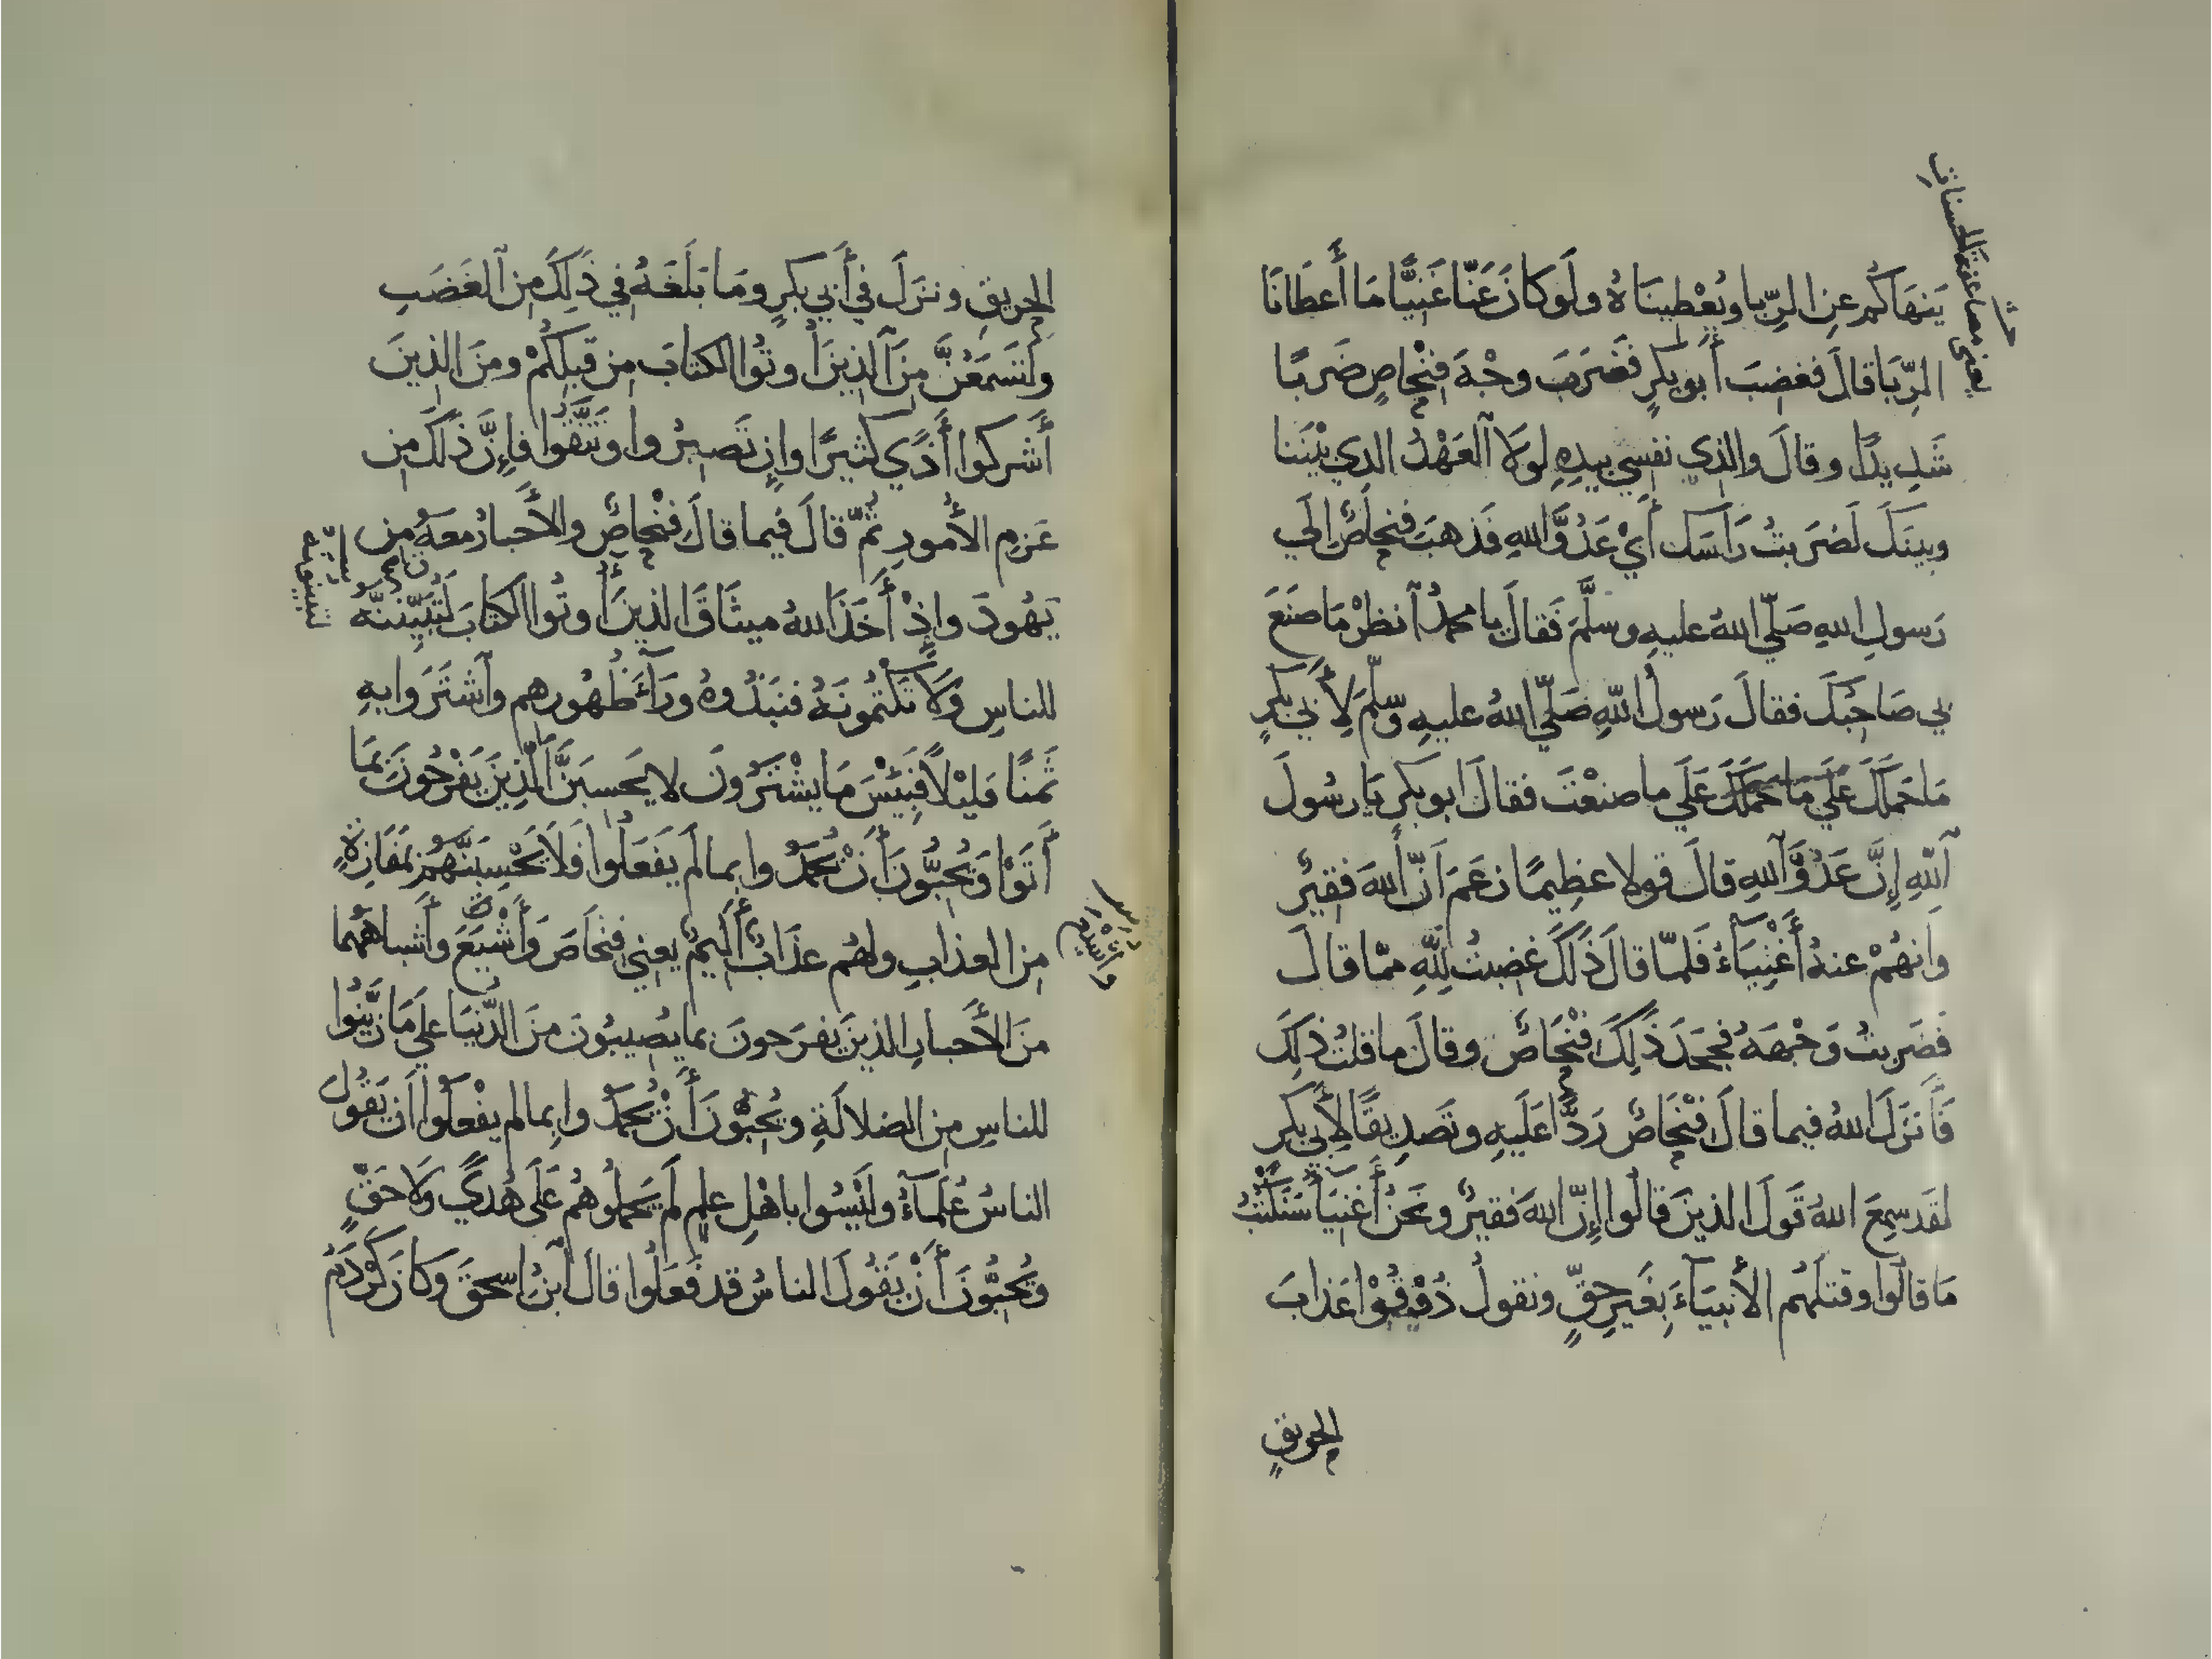 يَنهَاكُم عنِ الرِّبا ويُعْطِينَاهُ ولَو كانَ عَنَّا غَنِيًّا مَا أَعطَانَا
الرِّبَا قالَ فغضِبَ أَبو بكرٍ فَضَرَبَ وجْهَ فِنْحاصٍ ضَربًا
شَدِيدًا وقالَ والذِي نفسِي بيدِهِ لولَا العَهْدُ الذِي بيْنَنا
وبينَكَ لَضَربتُ رَأسَك أَيْ عَدُوَّ اللهِ فَذهبَ فنحاصٌ إلَي
رَسولِ اللهِ صَلَّي اللهُ عليهِ وسلَّمَ فَقالَ يا محمدُ آنظرْ مَا صنَعَ
بي صَاحِبُكَ فقالَ رَسولُ اللهِ صَلَّي اللهُ عليهِ وسلَّمَ لِأَبي بَكرٍ
مَا حَمَلَكَ عَلَي مَا حَمَلَكَ عَلَي ما صنعْتَ فقالَ ابو بكرٍ يَا رسُولَ
آللهِ إِنَّ عَدُوَّ آللهِ قالَ قولا عظِيمًا زعَمَ أَنَّ اللهَ فقيرٌ
وأَنهُمْ عنهُ أَغْنِيَآءُ فَلمّا قالَ ذَلكَ غضِبتُ لِلَّهِ ممّا قالَ
فضَربتُ وَجْهَهُ فجحَدَ ذَلِكَ فِنْحَاصٌ وقالَ ما قلتُ ذلِكَ
فَأَنزَلَ اللهُ فيما قالَ فِنْحَاصٌ رَدًّا عَلَيهِ وتَصدِيقًا لأَبي بكرٍ
لقَد سمِعَ اللهُ قَولَ الذينَ قالُوا إِنّ اللهَ فقيرٌ ونَحنُ أَغنيَآءُ سَنَكتُبُ
مَا قالُوا وقتلَهُم الأَنبيَآءَ بِغَيرِ حقٍّ ونقولُ ذُوقُوْا عَذابَ
الحريقِ
الحريقِ ونزَلَ في أَبي بكرٍ ومَا بَلَغَهُ في ذَلِكَ مِن الغَضَبِ
ولَتَسمَعُنَّ مِنَ الذِينَ أُوتُوا الكتابَ مِن قَبلِكُمْ ومنَ الذِينَ
أَشركوا أَذًي كثيرًا وإِن تَصبرُوا وتَتَّقُوا فإِنَّ ذَلكَ مِن
عَزمِ الأُمورِ ثُمّ قالَ فيما قالَ فِنْحاصٌ والأَحبارُ معَهُ مِن
يَهُودَ وإِذْ أَخَذَ اللهُ ميثَاقَ الذِينَ أُوتُوا الكتابَ لَتُبَيِّنُنَّهُ
للناسِ ولَا تَكْتُمُونَهُ فنبَذُوهُ ورَآءَ ظُهُورِهِم وآشتَرَوا بهِ
ثَمنًا قلِيْلًا فَبِئْسَ مَا يشْتَرُونَ لا يَحسبَنَّ الَّذِينَ يَفْرَحُونَ بمَا
أَتَوْا وَيُحِبُّونَ أَنْ يُحمَدُوا بِما لَم يَفعَلُوا فَلَا تَحْسِبَنَّهُم بمَفَازةٍ
مِن العذابِ ولهُم عذَابٌ أَليمٌ يعني فِنحَاصَ وَأَشْيَعَ وأَشباهَهُما
منَ الأَحبارِ الذينَ يفرَحونَ بما يُصِيبُونَ مِنَ الدُّنيَا علَي مَا زيَّنُوا
للناسِ مِن الضلالَةِ ويُحِبُّونَ أَنْ يُحمَدُوا بِما لم يفْعلُوا أَن يَقُولَ
الناسُ عُلَمآءُ ولَيْسُوا باهْلِ علمٍ لَم يَحمِلُوهُم عَلَي هُدًي ولَا حَقٍّ
ويُحِبُّونَ أَنْ يَقُولَ الناسُ قد فَعَلُوا قالَ آبنُ إسحقَ وكانَ كَرْدَمُ